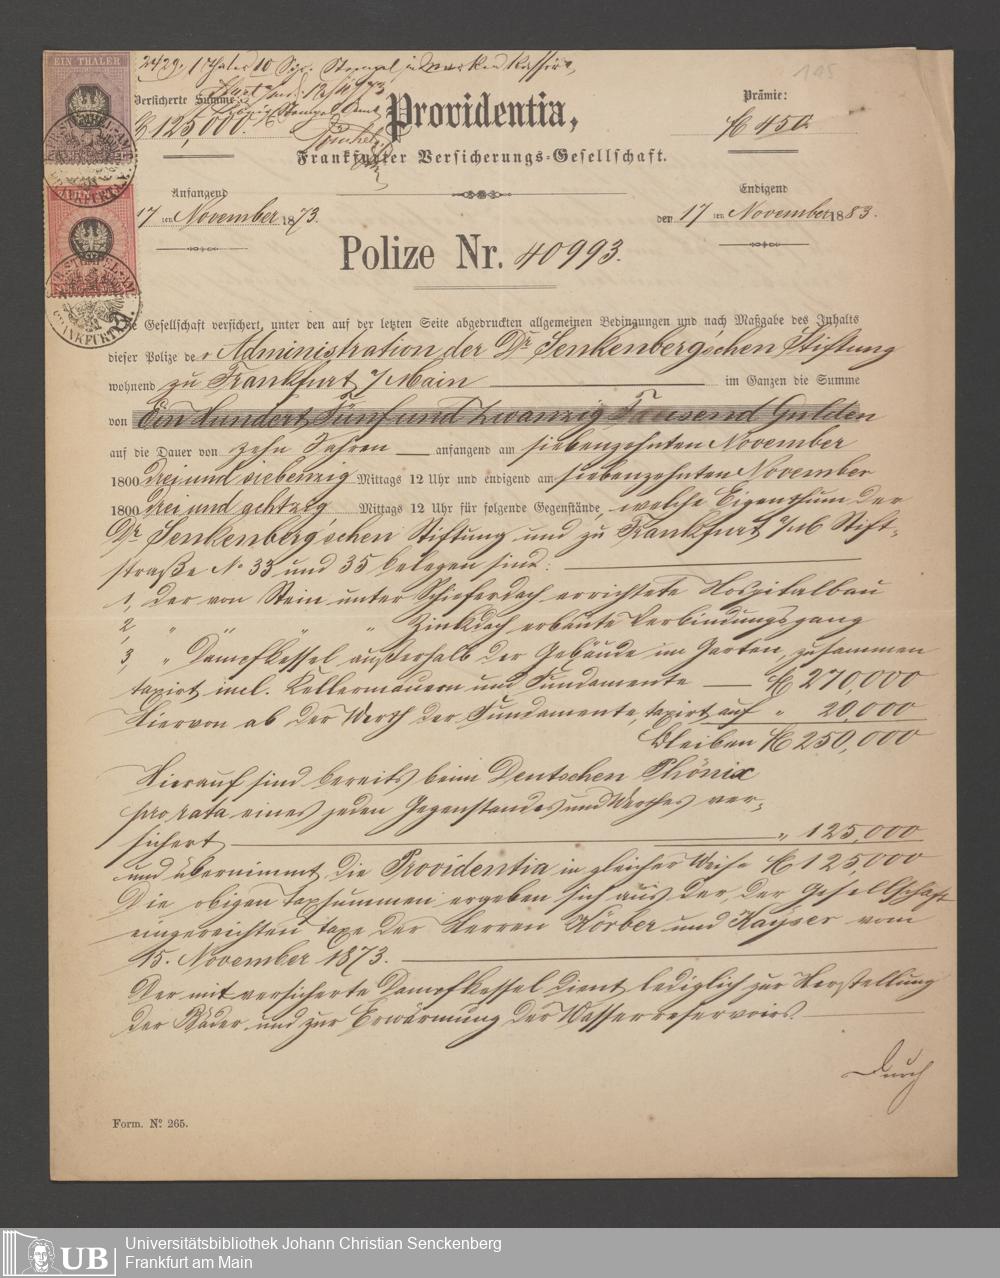 145
EIN THALER
2429. 1 Thaler 10 Sgr. Stempel in Marken kassirt,
Versicherte Summe:
Providentia,
Prämie:
125,000.
450.
Frankfurter Versicherungs-Gesellschaft.
Anfangend
Endigend
17ten November 1873.
den 17ten November 1883.
ZEHN
FRANKFURT A.M.
Polize Nr. 40993.
FRANKFURT A.M.
Gesellschaft versichert, unter den auf der letzten Seite abgedruckten allgemeinen Bedingungen und nach Maßgabe des Inhalts
dieser Polize der Administration der Dr Senkenberg'schen Stiftung
wohnend zu Frankfurt a/Main im Ganzen die Summe
von Ein Hundert Fünf und zwanzig Tausend Gulden
auf die Dauer von zehn Jahren anfangend am siebenzehnten November
1800 drei und siebenzig Mittags 12 Uhr und endigend am siebenzehnten November
1800 drei und achtzig Mittags 12 Uhr für folgende Gegenstände, welche Eigenthum der
Dr Senkenberg'schen Stiftung und zu Frankfurt a/M Stift-
straße No 33 und 35 belegen sind:
1, der von Stein unter Schieferdach errichtete Hospitalbau
2, " " " " Zinkdach erbaute Verbindungsgang
3, " Dampfkessel außerhalb der Gebäude im Garten, zusammen
taxirt incl. Kellermauern und Fundamente — 270,000
Hiervon ab der Werth der Fundamente, taxirt auf " 20,000
Bleiben 250,000
Hierauf sind bereits beim Deutschen Phönix
pro rata eines jeden Gegenstandes und Werthes ver-
sichert " 125,000
und übernimmt die Providentia in gleicher Weise 125,000
Die obigen Taxsummen ergeben sich aus der, der Gesellschaft
eingereichten Taxe der Herren Körber und Kayser vom
15. November 1873.
Der mit versicherte Dampfkessel dient lediglich zur Herstellung
der Bäder und zur Erwärmung der Wasserreservoirs.
Durch
Form. No 265.
UB
Universitätsbibliothek Johann Christian Senckenberg
Frankfurt am Main